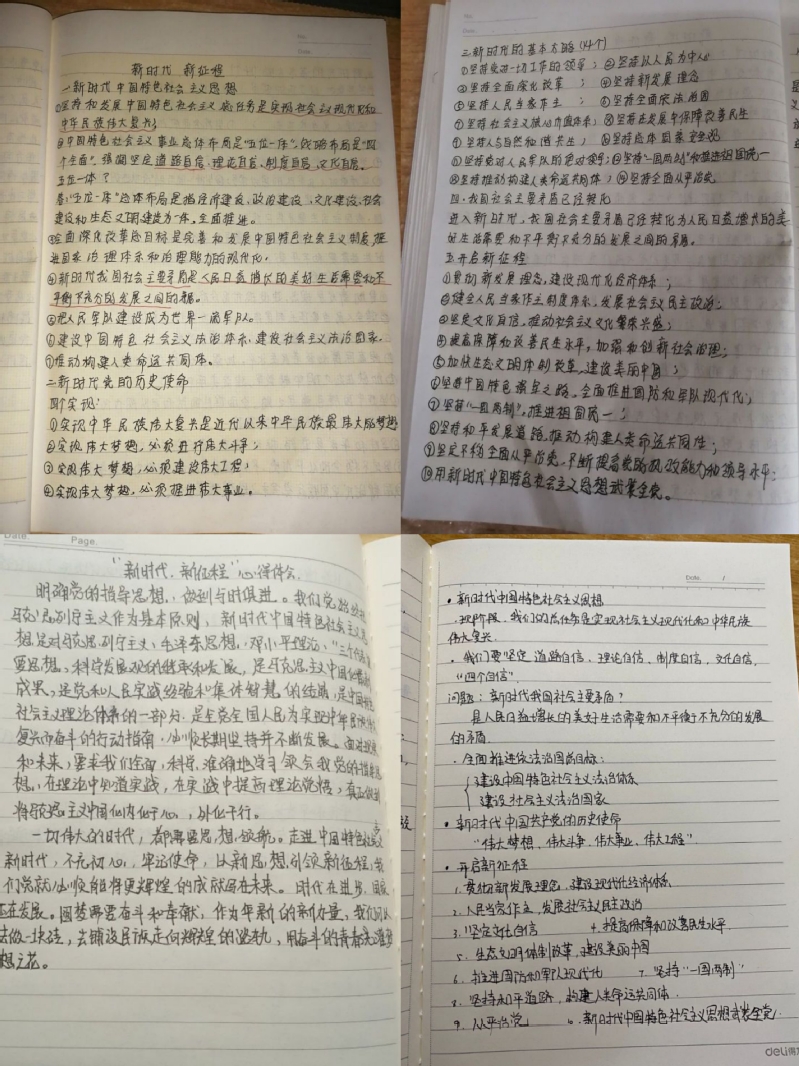 新时代 新征程
一.新时代中国特色社会主义思想
①坚持和发展中国特色社会主义,总任务是实现社会主义现代化和
中华民族伟大复兴;
②中国特色社会主义事业总体布局是"五位一体",战略布局是"四
个全面",强调坚定道路自信、理论自信、制度自信、文化自信。
五位一体?
答:"五位一体"总体布局是指经济建设、政治建设、文化建设、社会
建设和生态文明建设为一体,全面推进。
③全面深化改革总目标是完善和发展中国特色社会主义制度,推
进国家治理体系和治理能力的现代化;
④新时代我国社会主要矛盾是人民日益增长的美好生活需要和不
平衡不充分的发展之间的矛盾。
⑤把人民军队建设成为世界一流军队。
⑥建设中国特色社会主义法治体系,建设社会主义法治国家。
⑦推动构建人类命运共同体。
二.新时代党的历史使命
四个实现:
①实现中华民族伟大复兴是近代以来中华民族最伟大的梦想
②实现伟大梦想,必须进行伟大斗争;
③实现伟大梦想,必须建设伟大工程;
④实现伟大梦想,必须推进伟大事业。
No.
Date
三.新时代的基本方略(14个)
①坚持党进一切工作的领导; ②坚持以人民为中心
③坚持全面深化改革; ④坚持新发展理念
⑤坚持人民当家作主; ⑥坚持全面依法治国
⑦坚持社会主义核心价值体系; ⑧坚持在发展中保障改善民生
⑨坚持人与自然和谐共生; ⑩坚持总体国家安全观
⑪坚持党对人民军队的绝对领导; ⑫坚持"一国两制"和推进祖国统一
⑬坚持推动构建人类命运共同体; ⑭坚持全面从严治党
四.我国社会主要矛盾已经转化
进入新时代,我国社会主要矛盾已经转化为人民日益增长的美
好生活需要和不平衡不充分的发展之间的矛盾。
五.开启新征程
①贯彻新发展理念,建设现代化经济体系;
②健全人民当家作主制度体系,发展社会主义民主政治;
③坚定文化自信,推动社会主义文化繁荣兴盛;
④提高保障和改善民生水平,加强和创新社会治理;
⑤加快生态文明体制改革,建设美丽中国;
⑥坚持中国特色强军之路,全面推进国防和军队现代化;
⑦坚持"一国两制",推进祖国统一;
⑧坚持和平发展道路,推动构建人类命运共同体;
⑨坚定不移全面从严治党,不断提高党的执政能力和领导水平;
⑩用新时代中国特色社会主义思想武装全党。
Date. Page.
"新时代.新征程"心得体会.
明确党的指导思想,做到与时俱进。我们党始终
马克思列宁主义作为基本原则,新时代中国特色社会主义思
想是对马克思列宁主义、毛泽东思想、邓小平理论、"三个代表"
要思想、科学发展观的继承和发展,是马克思主义中国化
成果,是党和人民实践经验和集体智慧的结晶,是中国特色
社会主义理论体系的一部分,是全党全国人民为实现中华民族
复兴而奋斗的行动指南,必须长期坚持并不断发展。面对现
和未来,要求我们全面,科学,准确地学习领会我党的指导思
想,在理论中知道实践,在实践中提高理论觉悟,真正做到
将马克思主义中国化内化于心,外化于行。
一切伟大的时代,都需要思想领航。走进中国特色社会主义
新时代,不忘初心,牢记使命,以新思想引领新征程,我
们党就必须能将更辉煌的成就写在未来。时代在进步,国家
正在发展。圆梦需要奋斗和奉献,作为年新的新力量,我们可以
去做一块砖,去铺设民族走向辉煌的道轨,用奋斗的青春去灌
想之花。
Date. /
• 新时代中国特色社会主义思想
.现阶段,我们的总任务是实现社会主义现代化和中华民族
伟大复兴.
.我们要坚定道路自信、理论自信、制度自信、文化自信,
"四个自信".
问题:新时代我国社会主要矛盾?
是人民日益增长的美好生活需要和不平衡不充分的发展
的矛盾
.全面推进依法治国总目标:
建设中国特色社会主义法治体系
建设社会主义法治国家
• 新时代中国共产党的历史使命
"伟大梦想、伟大斗争、伟大事业、伟大工程"
• 开启新征程
1.贯彻新发展理念,建设现代化经济体系
2.人民当家作主,发展社会主义民主政治
3.坚定文化自信 4.提高保障和改善民生水平.
5.生态文明体制改革,建设美丽中国
6.推进国防和军队现代化 7.坚持"一国两制"
8.坚持和平道路,构建人类命运共同体.
9.从严治党 10.新时代中国特色社会主义思想武装全党.
deli得力